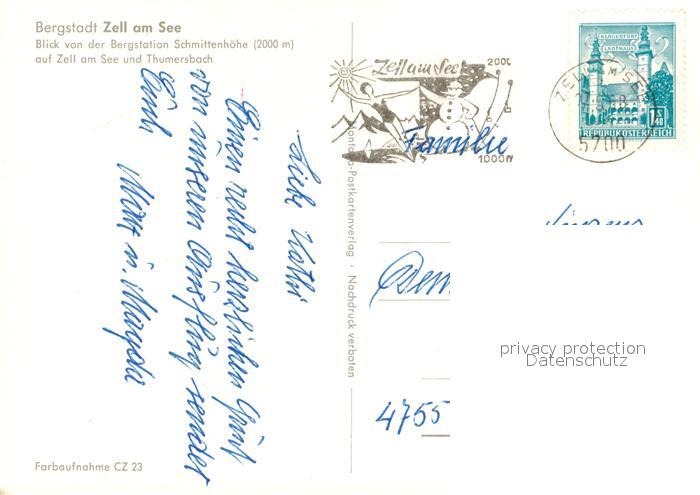 Bergstadt Zell am See
Blick von der Bergstation Schmittenhöhe (2000 m)
auf Zell am See und Thumersbach
Liebe
Einen recht herzlichen Gruß
von unserem Ausflug sendet
Euch
Zell am See
2000
1000 m
KLAGENFURT
LANDHAUS
1 S 40
REPUBLIK ÖSTERREICH
ZELL AM SEE
5700
Familie
4755
Montana-Postkartenverlag · Nachdruck verboten
Farbaufnahme CZ 23
privacy protection
Datenschutz